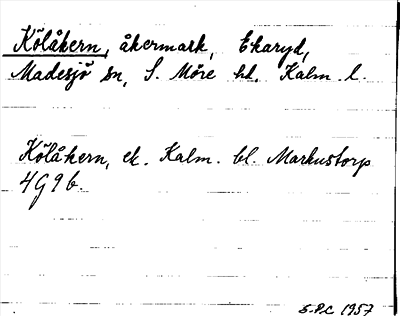 Kölåkern, åkermark, Ekaryd,
Madesjö sn, S. Möre hd. Kalm. l.
Kölåkern, ek. Kalm. bl. Markustorp
4G9b.
S.P.C. 1957